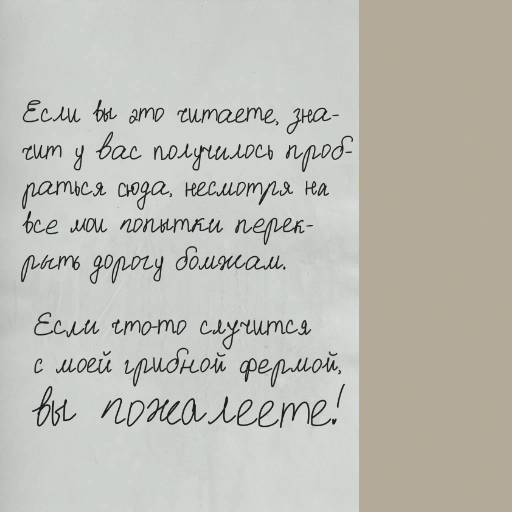 Если вы это читаете, зна-
чит у вас получилось проб-
раться сюда, несмотря на
все мои попытки перек-
рыть дорогу бомжам.
Если что-то случится
с моей грибной фермой,
вы пожалеете!